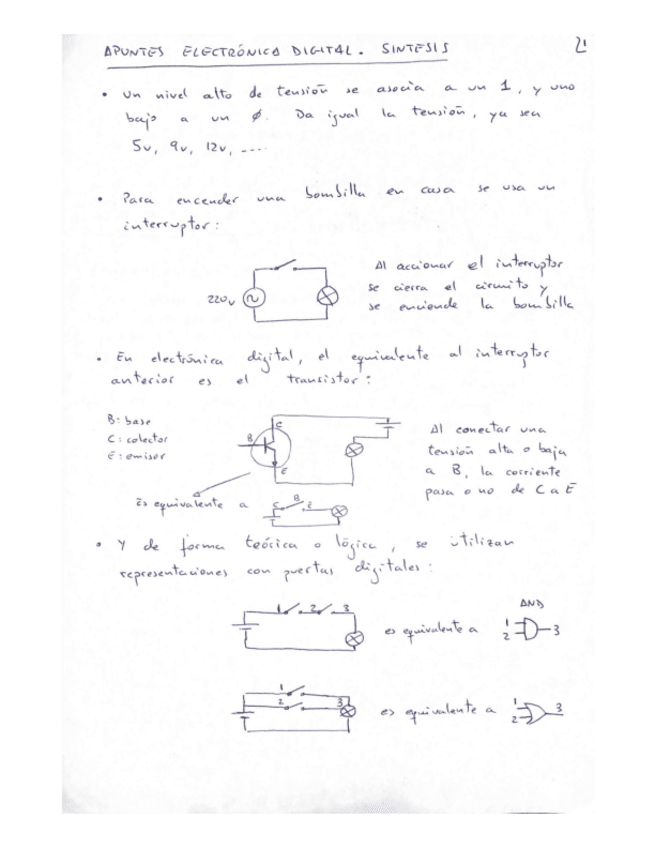 APUNTES ELECTRÓNICA DIGITAL. SINTESIS
21
• Un nivel alto de tensión se asocia a un 1, y uno
bajo a un ∅. Da igual la tensión, ya sea
5v, 9v, 12v, ....
• Para encender una bombilla en casa se usa un
interruptor:
220v
Al accionar el interruptor
se cierra el circuito y
se enciende la bombilla
• En electrónica digital, el equivalente al interruptor
anterior es el transistor:
B: base
C: colector
E: emisor
B
C
E
Al conectar una
tensión alta o baja
a B, la corriente
pasa o no de C a E
Es equivalente a
C B E
• Y de forma teórica o lógica, se utilizan
representaciones con puertas digitales:
1 2 3
es equivalente a
AND
1
2
3
1
2
3
es equivalente a
1
2
3